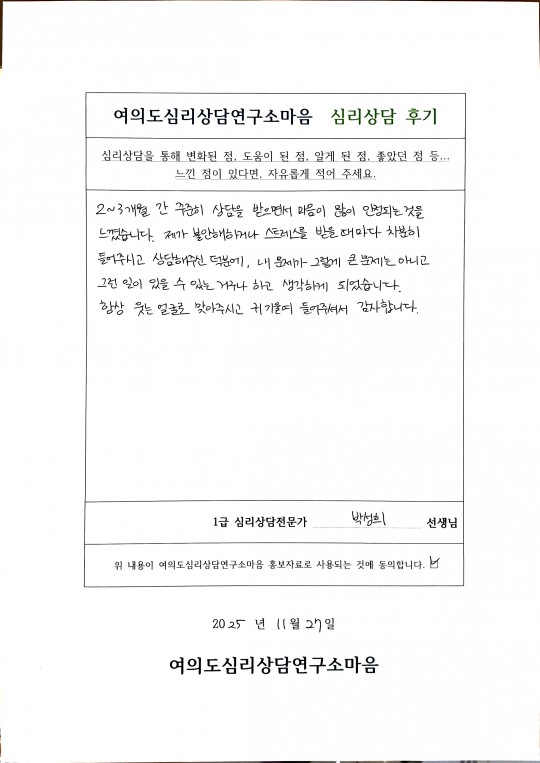 여의도심리상담연구소마음 심리상담 후기
심리상담을 통해 변화된 점, 도움이 된 점, 알게 된 점, 좋았던 점 등...
느낀 점이 있다면, 자유롭게 적어 주세요.
2~3개월 간 꾸준히 상담을 받으면서 마음이 많이 안정되는 것을
느꼈습니다. 제가 불안해하거나 스트레스를 받을 때마다 차분히
들어주시고 상담해주신 덕분에, 내 문제가 그렇게 큰 문제는 아니고
그런 일이 있을 수 있는 거구나 하고 생각하게 되었습니다.
항상 웃는 얼굴로 맞아주시고 귀 기울여 들어주셔서 감사합니다.
1급 심리상담전문가 박성희 선생님
위 내용이 여의도심리상담연구소마음 홍보자료로 사용되는 것에 동의합니다. ☑
2025 년 11월 27일
여의도심리상담연구소마음